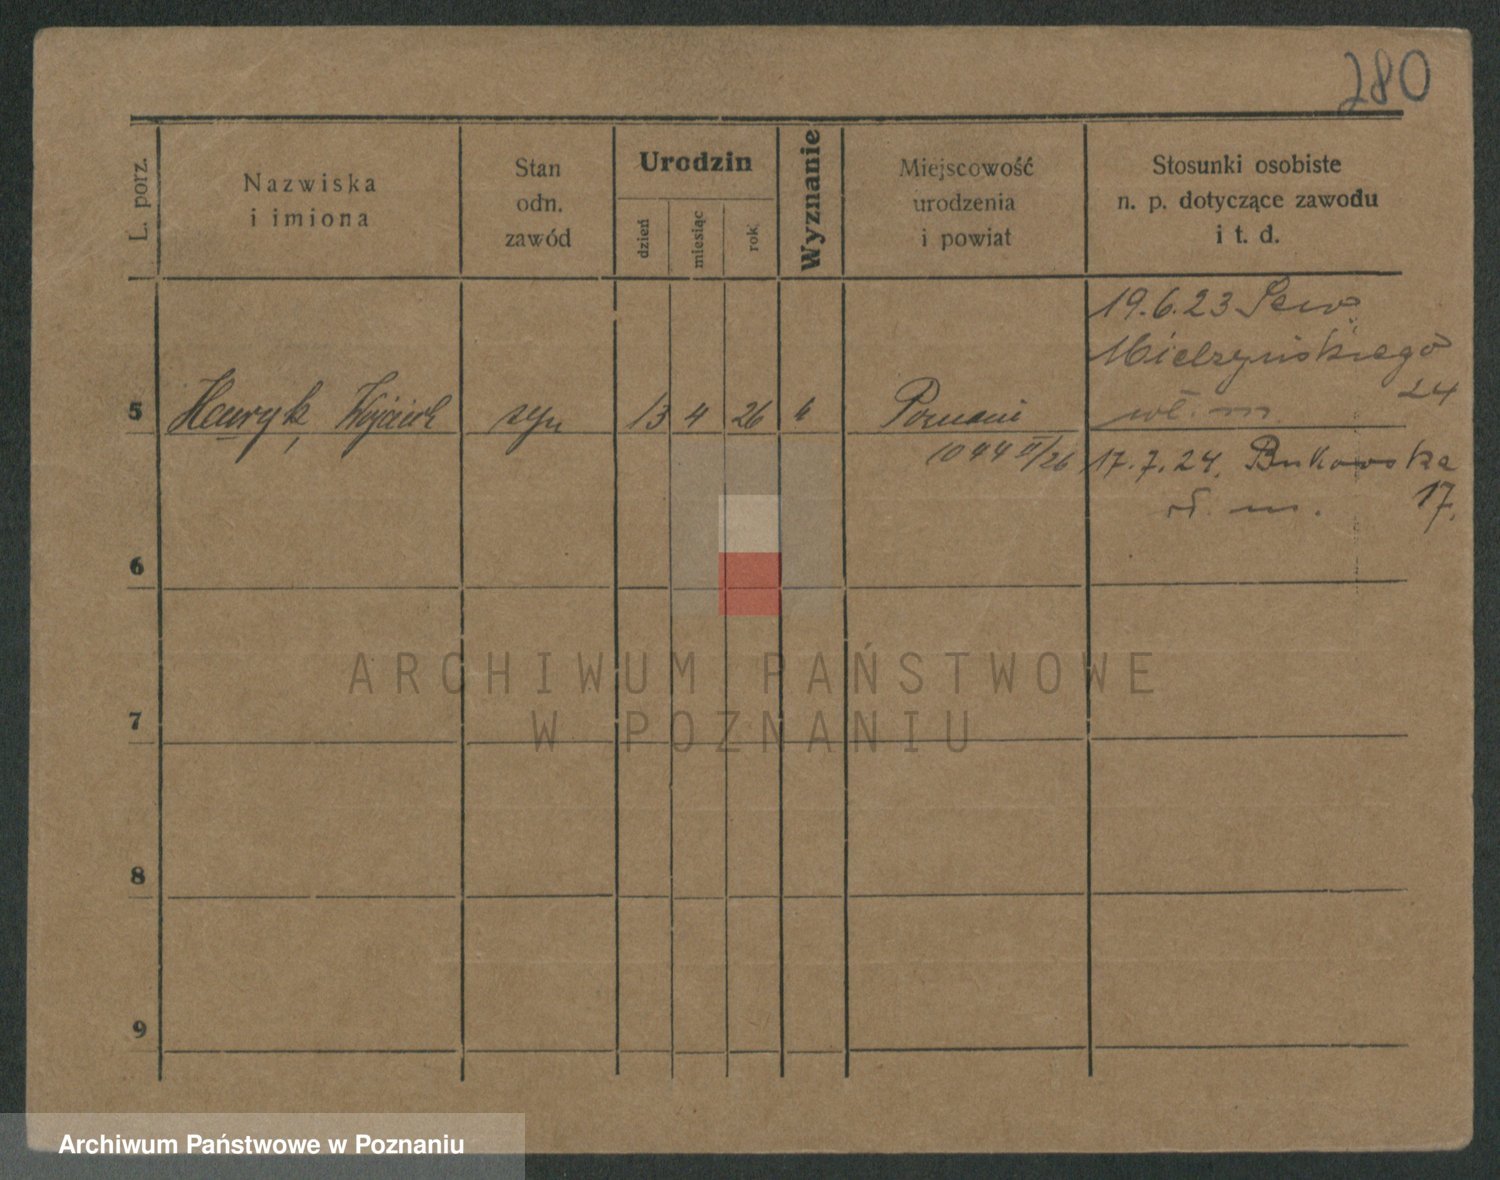 280
L. porz.
Nazwiska
i imiona
Stan
odn.
zawód
Urodzin
dzień
miesiąc
rok
Wyznanie
Miejscowość
urodzenia
i powiat
Stosunki osobiste
n. p. dotyczące zawodu
i t. d.
19.6.23 Sew.
Mielżyńskiego
24
wł. m.
5 Henryk, Wojciech syn 13 4 26 k Poznań
1044 II/26
17.7.24. Bukowska
17.
wł. m.
6
7
8
9
ARCHIWUM PAŃSTWOWE
W POZNANIU
Archiwum Państwowe w Poznaniu